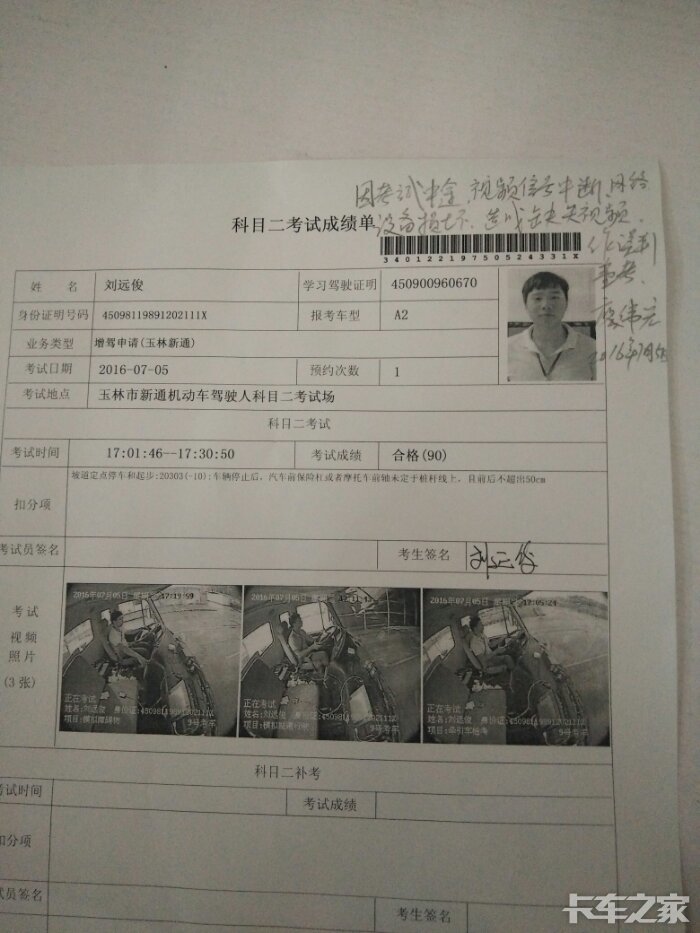 因考试中途,视频信号中断,网络
设备损坏,造成缺失视频,
作误判
重考.
科目二考试成绩单
3401221975052433​1X
姓 名 刘远俊 学习驾驶证明 450900960670
身份证明号码 45098119891202111X 报考车型 A2
业务类型 增驾申请(玉林新通)
考试日期 2016-07-05 预约次数 1
考试地点 玉林市新通机动车驾驶人科目二考试场
科目二考试
考试时间 17:01:46--17:30:50 考试成绩 合格(90)
扣分项 坡道定点停车和起步:20303(-10):车辆停止后,汽车前保险杠或者摩托车前轴未定于桩杆线上,且前后不超出50cm
考试员签名 考生签名 刘远俊
考试
视频
照片
(3张)
2016年07月05日 星期二 17:19:59
正在考试
姓名:刘远俊 身份证:45098119891202111X
项目:模拟隧道 9号考车
2016年07月05日
正在考试
姓名:刘远俊 身份证:45098119891202111X
9号考车
2016年07月05日 17:05:24
正在考试
姓名:刘远俊 身份证:45098119891202111X
项目:牵引车桩考 9号考车
科目二补考
考试时间 考试成绩
扣分项
考试员签名 考生签名
卡车之家